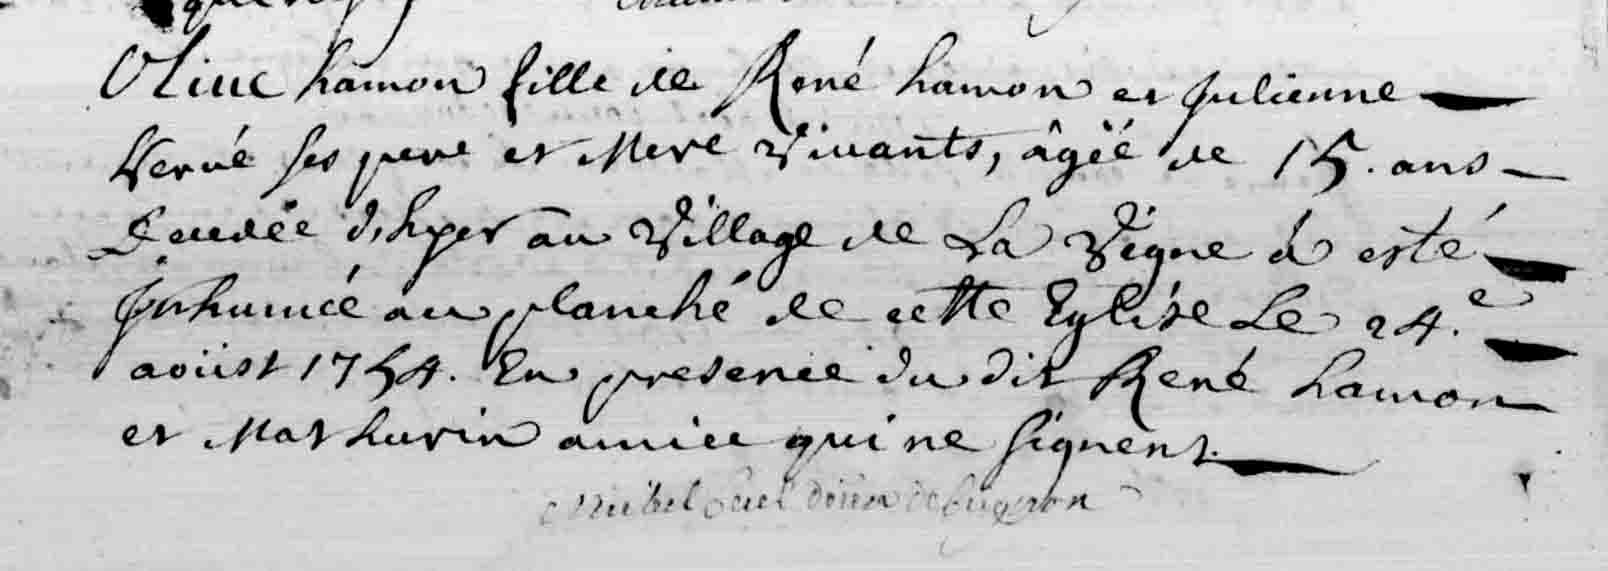 Oliue hamon fille de René hamon et Julienne
Hervé ses pere et Mere Vivants, âgée de 15. ans
Decedée d'hyer au Village de La Vigne á esté
Inhumée au planché de cette Eglise Le 24.e
aoüst 1754. En presence du dit René hamon
et Mathurin amice qui ne signent.